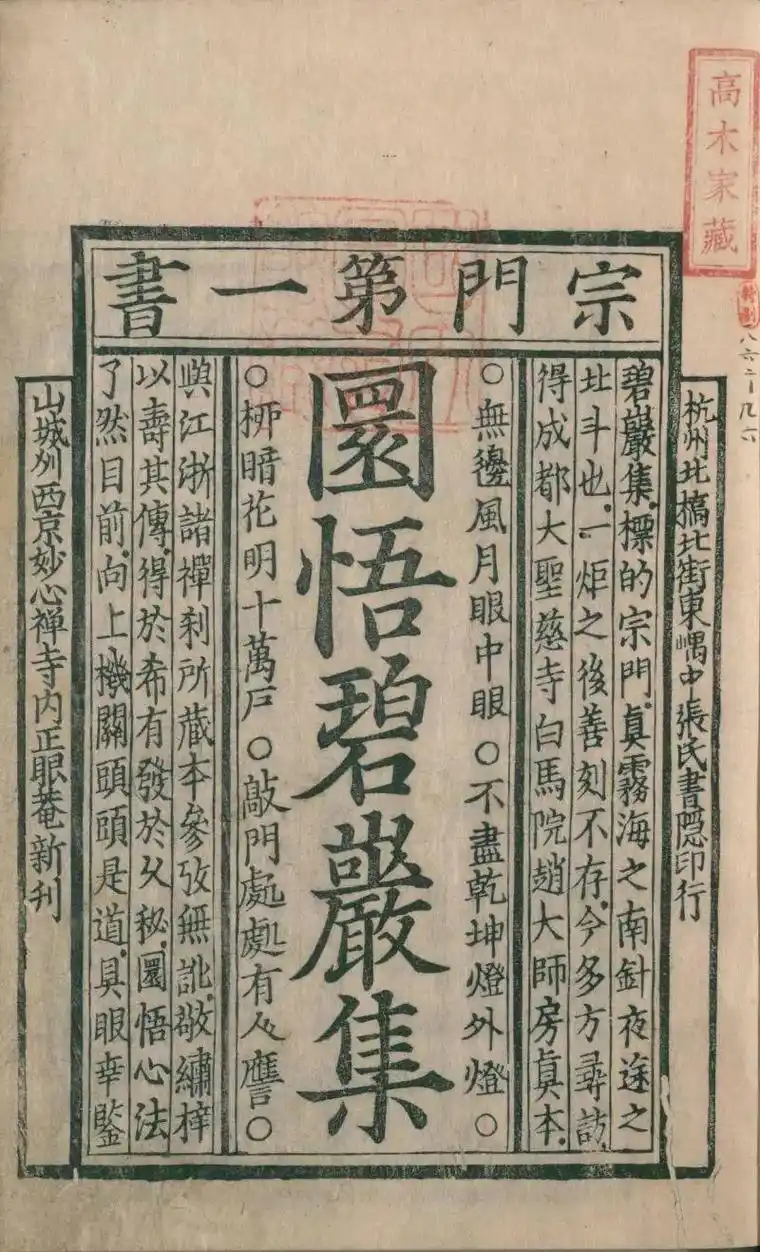 高木家藏
宗門第一書
杭州北橋北街東嵎中張氏書隠印行
碧巖集標的宗門真霧海之南針夜途之
北斗也一炬之後善刻不存今多方尋訪
得成都大聖慈寺白馬院趙大師房真本
○無邊風月眼中眼○不盡乾坤燈外燈○
圜悟碧巖集
○栁暗花明十萬戸○敲門處處有人譍○
與江浙諸禪刹所蔵本參攷無訛敬繡梓
以壽其傳得於希有發於久秘圜悟心法
了然目前向上機關頭頭是道具眼幸鑒
山城州西京妙心禅寺内正眼菴新刊